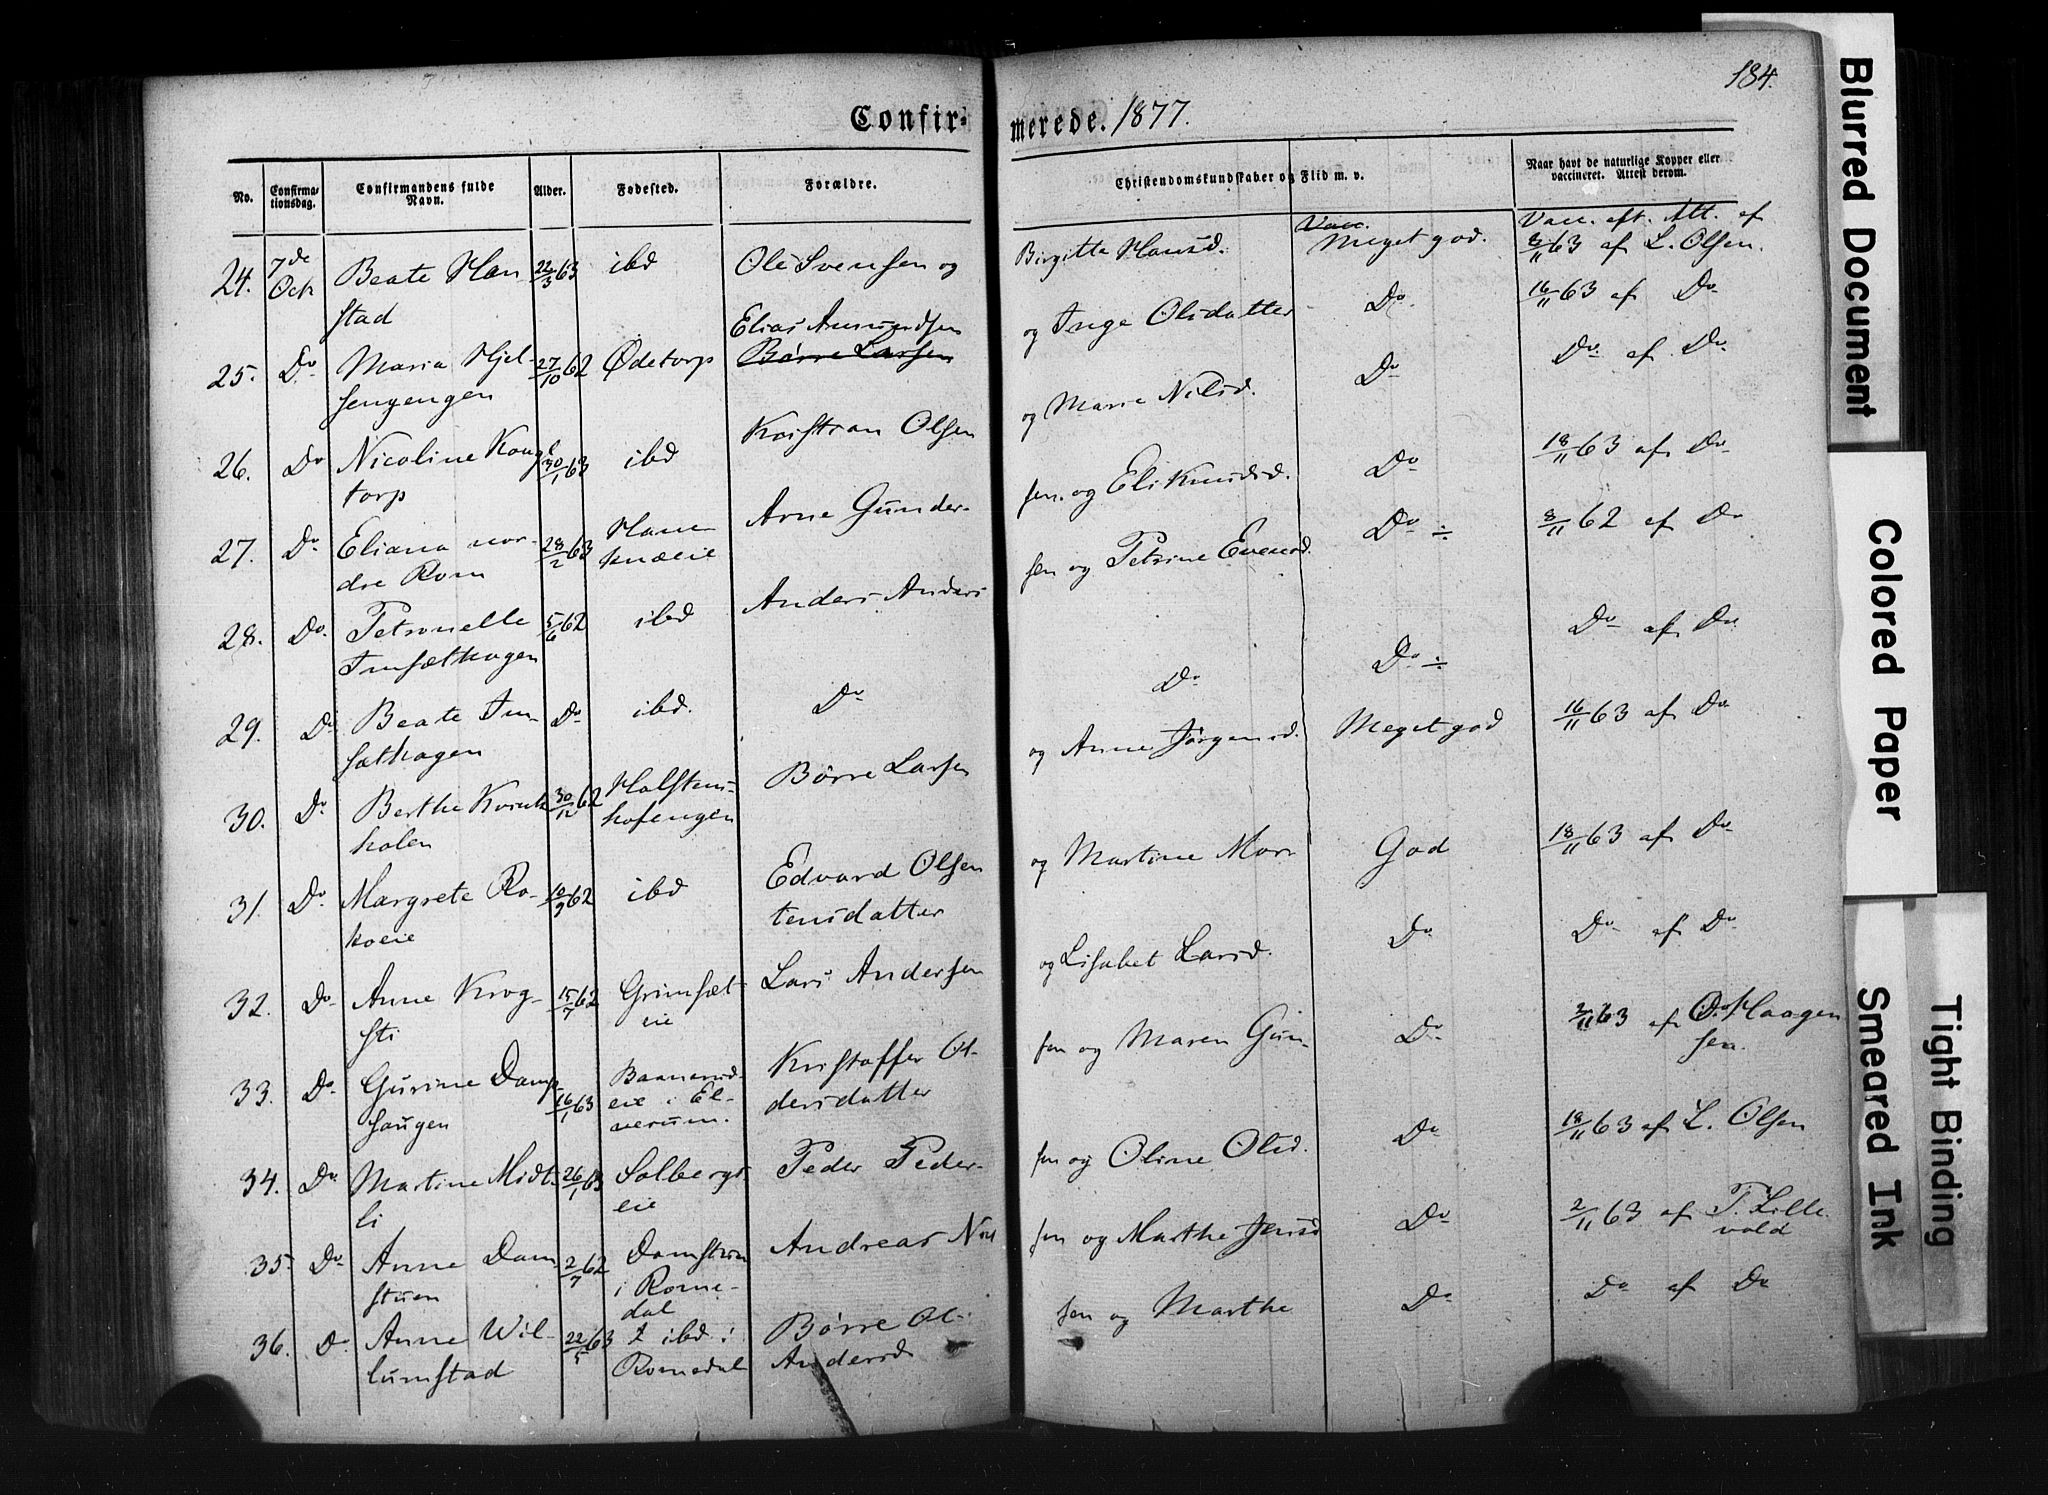 184.
Confir-
merede. 1877.
No.
Confirma-
tionsdag.
Confirmandens fulde
Navn.
Alder.
Fødested.
Forældre.
Christendomskundskaber og Flid m. v.
Naar havt de naturlige Kopper eller
vaccineret. Attest derom.
24. 7de Beate Han 22/3 63 ibd Ole Svensen og Birgitte Hansd. Meget god. Vacc. eft. Att. af
Oct stad 3/11 63 af L. Olsen.
25. Do Maria Hjel- 27/10 62 Ødetorp Elias Amundsen og Inge Olsdatter Do 16/11 63 af Do
sengengen Børre Larsen
26. Do Nicoline Kongs 30/1 63 ibd Kristian Olsen og Marie Nilsd. Do Do af Do
torp
27. Do Eliana nor- 28/2 63 Arne Gunder- sen og Eli Knudsd. Do 18/11 63 af Do
dre Rom knæeie
28. Do Petronelle 5/6 62 ibd Anders Anders sen og Petrine Evensd. Do ÷ 8/11 62 af Do
Imsæthagen
29. Do Beate Im- Do ibd. Do Do Do ÷ Do af Do
sæthagen
30. Do Berthe 30/12 62 Halstens- Børre Larsen og Anne Jørgensd. Meget god 16/11 63 af Do
holen hofengen
31. Do Margrete Ro- 10/9 62 ibd Edvard Olsen og Martine Mor- God 18/11 63 af Do
koeie tensdatter
32. Do Anne Krog- 15/7 62 Grimsæt- Lars Andersen og Lisabet Larsd. Do Do af Do
sti eie
33. Do Gurine Damp- 16/1 63 Baanerud- Kristoffer Ol- sen og Maren Gun- Do 3/11 63 af O. Haagen
haugen eie i El- dersdatter sen.
verum.
34. Do Martine Midt- 26/1 63 Solbergs Peder Peder- sen og Oline Olsd. Do 18/11 63 af L. Olsen
li eie
35. Do Anne Dam 2/7 62 Damstuen Andreas Nil sen og Marthe Jensd Do 2/11 63 af T. Lille-
stuen i Rome- vold
dal
36. Do Anne Wil- 22/5 63 ibd i Børre Ol- sen og Marthe Do Do af Do
lumstad Romedal Andersd
Blurred Document
Colored Paper
Smeared Ink
Tight Binding